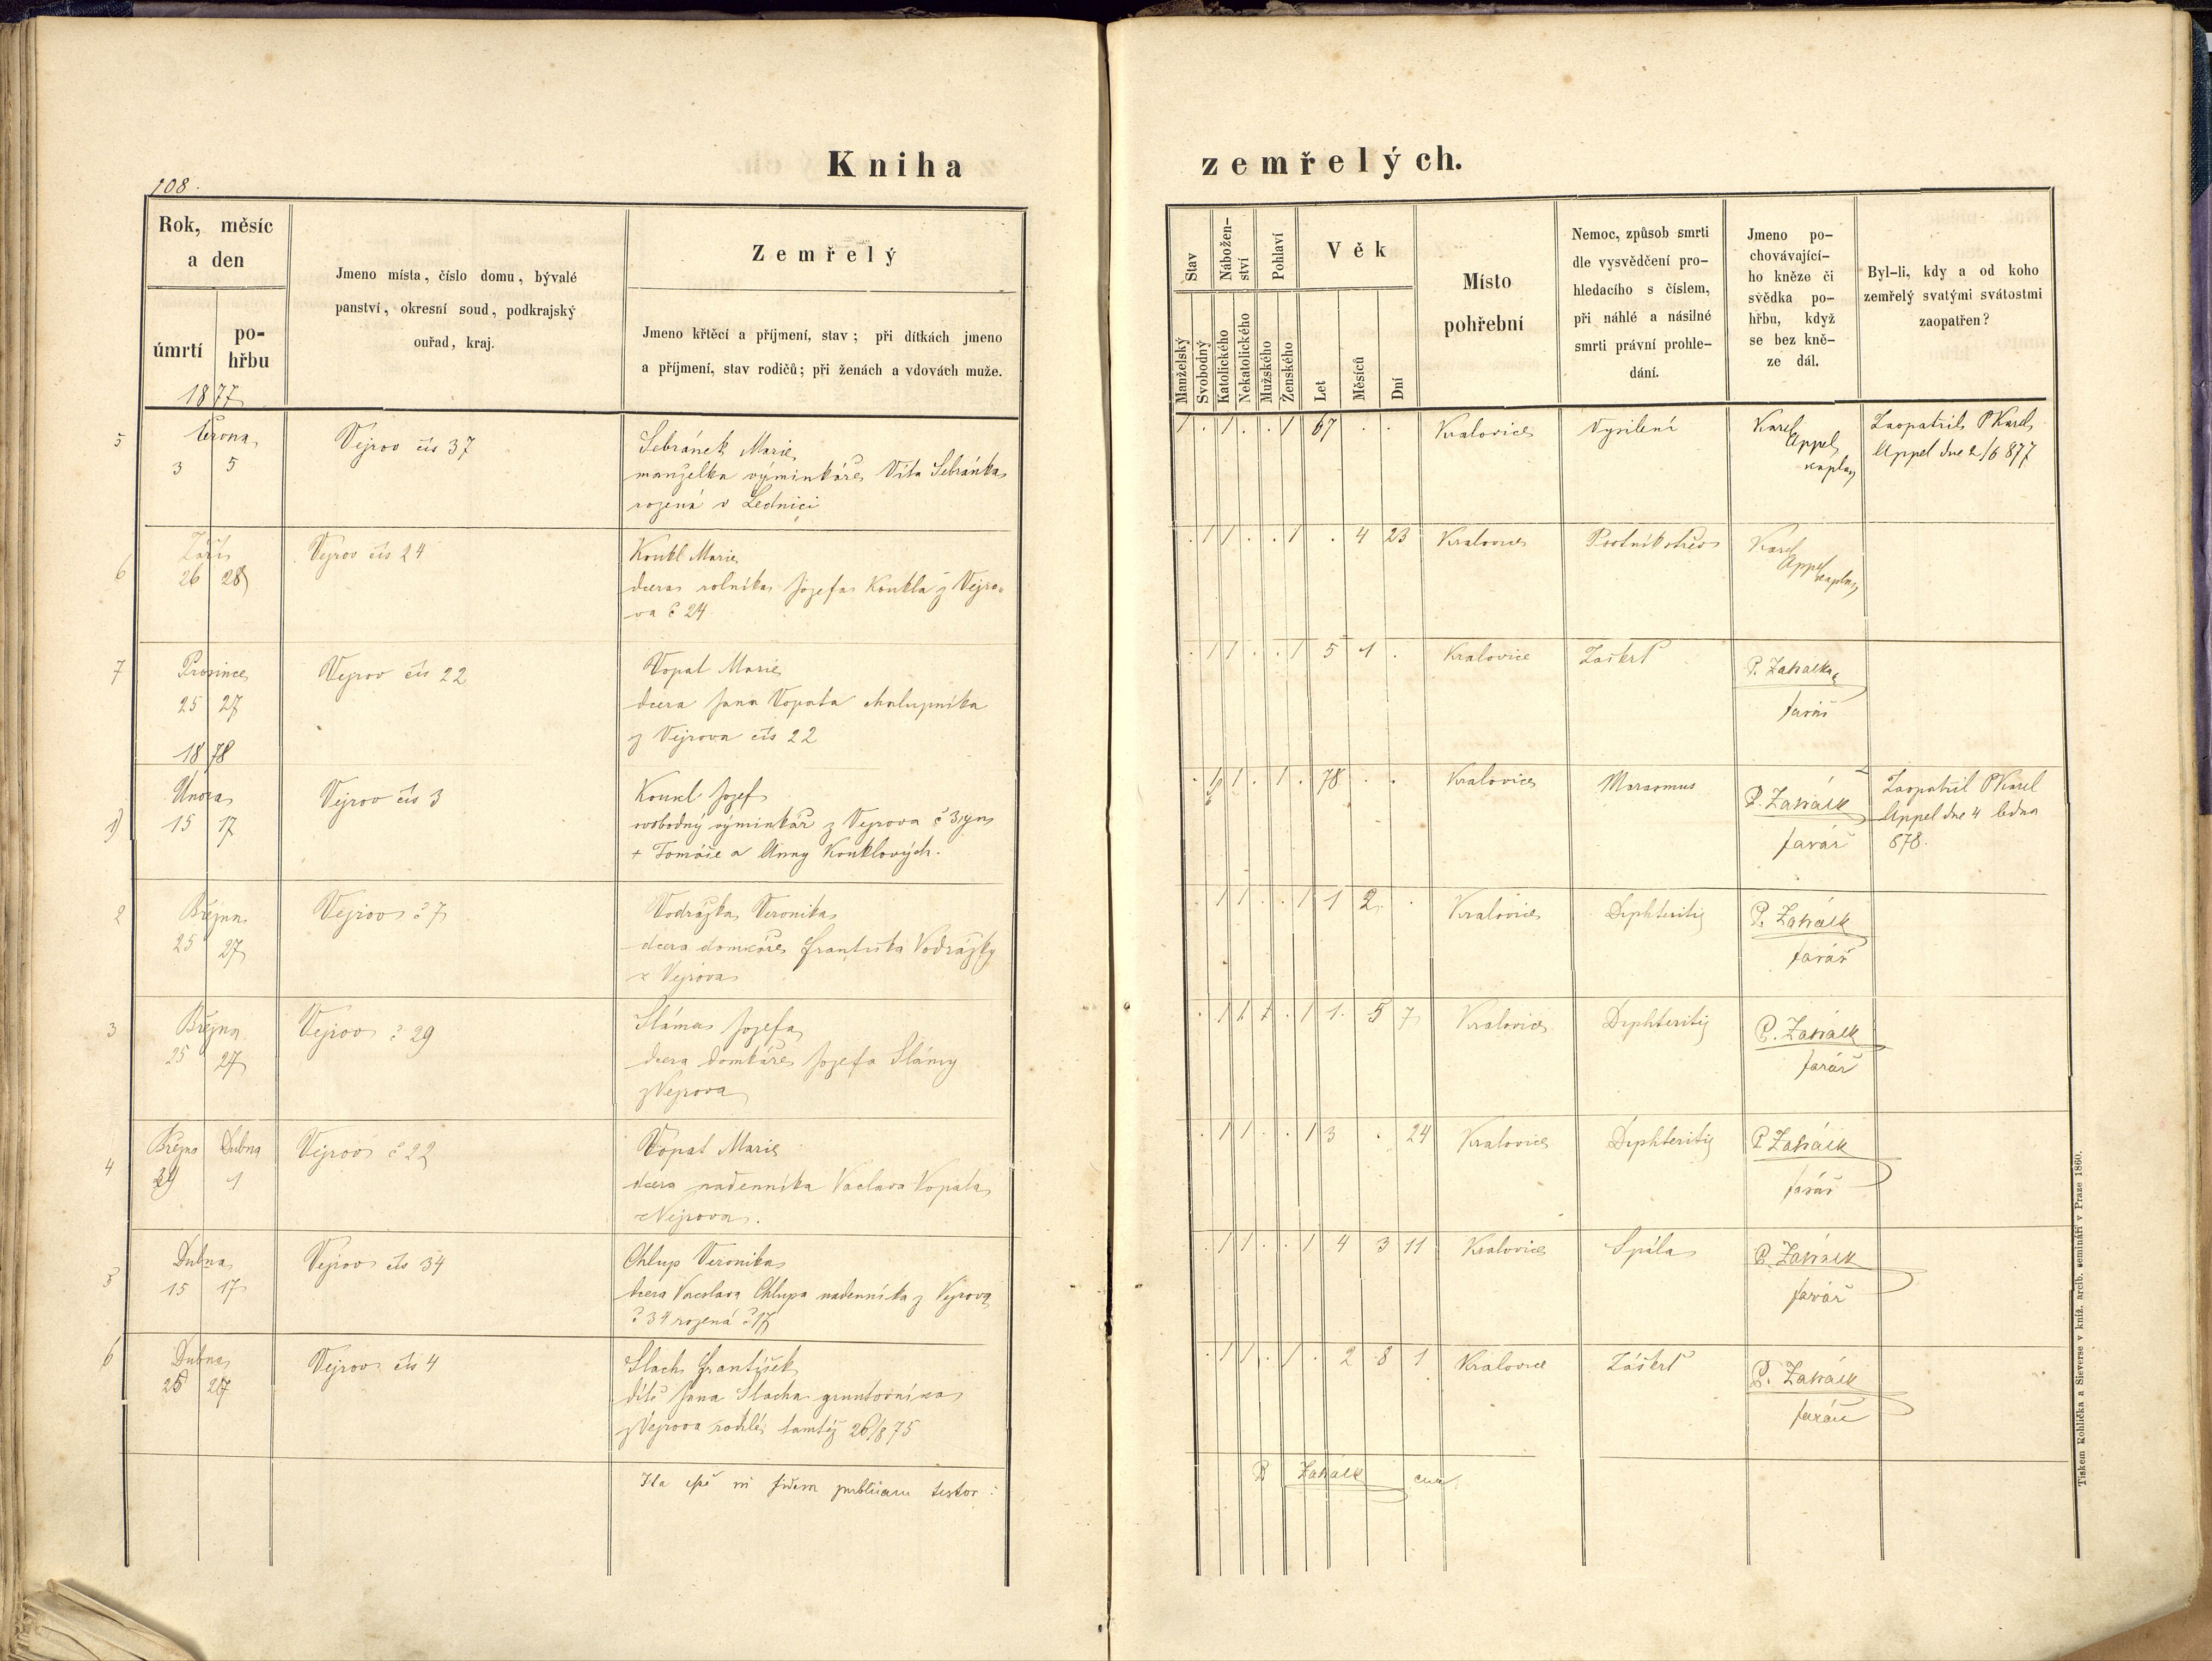 108.
Kniha zemřelých.
Rok, měsíc
a den
úmrtí
po-
hřbu
1877
Jmeno místa, číslo domu, bývalé
panství, okresní soud, podkrajský
ouřad, kraj.
Zemřelý
Jmeno křtěcí a příjmení, stav; při dítkách jmeno
a příjmení, stav rodičů; při ženách a vdovách muže.
Stav
Nábožen-
ství
Pohlaví
Věk
Manželský
Svobodný
Katolického
Nekatolického
Mužského
Ženského
Let
Měsíců
Dní
Místo
pohřební
Nemoc, způsob smrti
dle vysvědčení pro-
hledacího s číslem,
při náhlé a násilné
smrti právní prohle-
dání.
Jmeno po-
chovávající-
ho kněze či
svědka po-
hřbu, když
se bez kně-
ze dál.
Byl-li, kdy a od koho
zemřelý svatými svátostmi
zaopatřen?
5
Června
3 5
Vejrov čís 37
Sebránek Marie
manželka výminkáře Víta Sebránka
rozená v Lednici
1 . 1 . . 1 67 . .
Kralovice
Vysílení
Karel
Appel
kaplan
Zaopatřil P Karel
Appel dne 2/6 877
6
Září
26 28
Vejrov čís 24
Koukl Marie
dcera rolníka Jozefa Koukla z Vejro-
va č 24
. 1 1 . . 1 . 4 23
Kralovice
Karel
Appel
kaplan
7
Prosince
25 27
Vejrov čís 22
Vopat Marie
dcera Jana Vopata chalupníka
z Vejrova čís 22
. 1 1 . . 1 5 1 .
Kralovice
Záškrt
P. Zahálka
farář
1878
1)
Února
15 17
Vejrov čís 3
Koukl Jozef
svobodný výminkář z Vejrova č 3 syn
+ Tomáše a Anny Kouklových.
1 . 1 . 78 . .
Kralovice
Marasmus
P. Zahálk
farář
Zaopatřil P Karel
Appel dne 4 ledna
878.
2
Března
25 27
Vejrov č 7
Vodrážka Veronika
dcera domkáře Františka Vodrážky
z Vejrova
. 1 1 . . 1 1 2 .
Kralovice
Diphteritis
P. Zahálk
farář
3
Března
25 27
Vejrov č 29
Sláma Jozefa
dcera domkáře Jozefa Slámy
z Vejrova
. 1 1 . 1 1 5 7
Kralovice
Diphteritis
P. Zahálk
farář
4
Března Dubna
29 1
Vejrov č 22
Vopat Marie
dcera nádenníka Václava Vopata
z Vejrova.
. 1 1 . . 1 3 . 24
Kralovice
Diphteritis
P Zahálk
farář
5
Dubna
15 17
Vejrov čís 34
Chlup Veronika
dcera Václava Chlupa nádenníka z Vejrova
č 34 rozená č 17
. 1 1 . . 1 4 3 11
Kralovice
Spála
P. Zahálk
farář
6
Dubna
25 27
Vejrov čís 4
Slach František
dítě Jana Slacha gruntovníka
z Vejrova rodilé tamtéž 26/8 75
. 1 1 . 1 . 2 8 1
Kralovice
Záškrt
P. Zahálk
farář
Ita esse in fidem publicam testor:
P Zahálk
Tiskem Rohlíčka a Sieverse v kníž. arcib. semináři v Praze 1860.